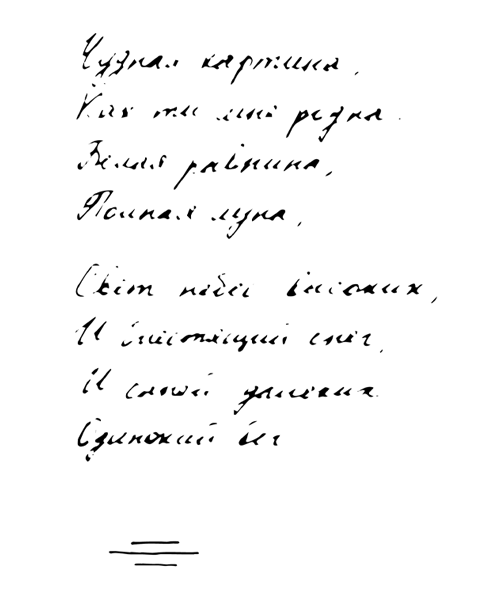 Чудная картина,
Как ты мне родна.
Белая равнина,
Полная луна,
Свет небес высоких,
И блестящий снег,
И саней далеких
Одинокий бег